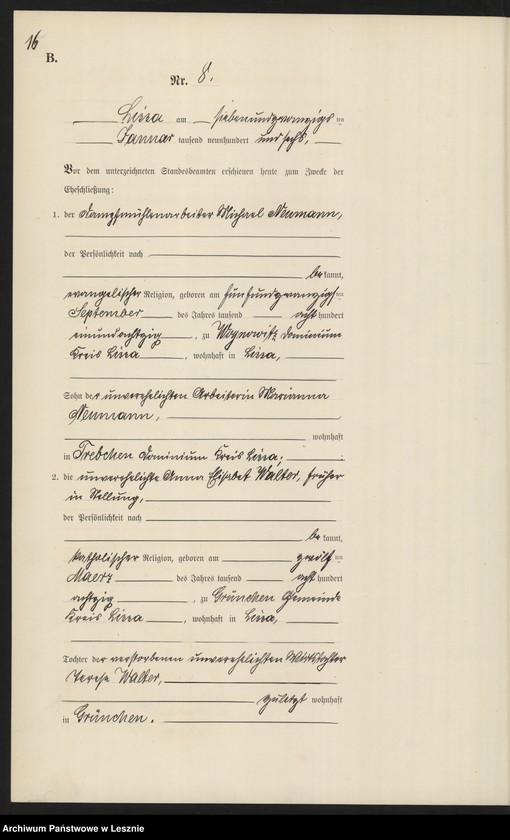 16
B.
Nr. 8.
Lissa am siebenundzwanzigs ten
Januar tausend neunhundert und sechs,
Vor dem unterzeichneten Standesbeamten erschienen heute zum Zwecke der
Eheschließung:
1. der Dampfmühlenarbeiter Michael Neumann,
der Persönlichkeit nach
be kannt,
evangelischer Religion, geboren am fünfundzwanzigs ten
September des Jahres tausend acht hundert
einundachtzig, zu Woynowitz Dominium
Kreis Lissa, wohnhaft in Lissa,
Sohn der unverehelichten Arbeiterin Marianna
Neumann,
wohnhaft
in Trebchen Dominium Kreis Lissa;
2. die unverehelichte Anna Elisabet Walter, früher
in Stellung,
der Persönlichkeit nach
be kannt,
katholischer Religion, geboren am zwölf ten
Maerz des Jahres tausend acht hundert
achtzig, zu Grünchen Gemeinde
Kreis Lissa, wohnhaft in Lissa,
Tochter der verstorbenen unverehelichten Wirtstochter
Terese Walter,
zuletzt wohnhaft
in Grünchen.
Archiwum Państwowe w Lesznie